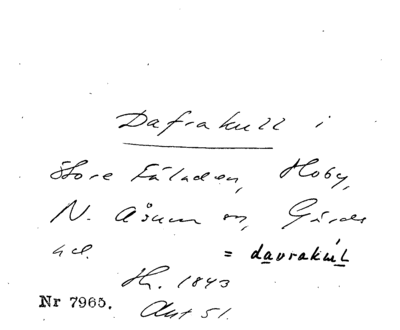 Dafrakull i
Store Fäladen, Hoby,
N. Åsum sn, Gärds
hd. = davrakúl
Hk. 1843
Akt 51.
Nr 7965.